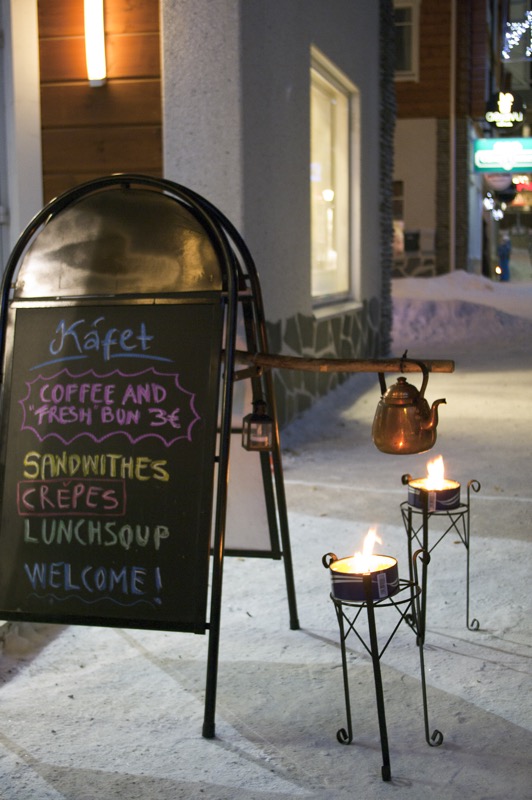 Káfet
COFFEE AND
"FRESH" BUN 3€
SANDWITHES
CRÊPES
LUNCHSOUP
WELCOME!